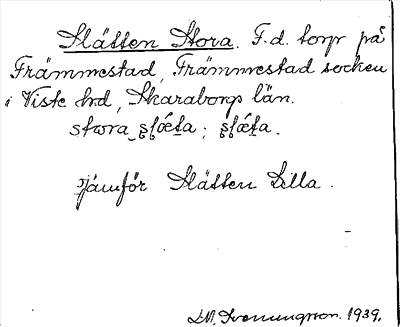 Slätten Stora. F.d. torp på
Främmestad, Främmestad socken
i Viste hd, Skaraborgs län.
stωra ʂɭǽta; ʂɭǽta.
Jämför Slätten Lilla.
1939.